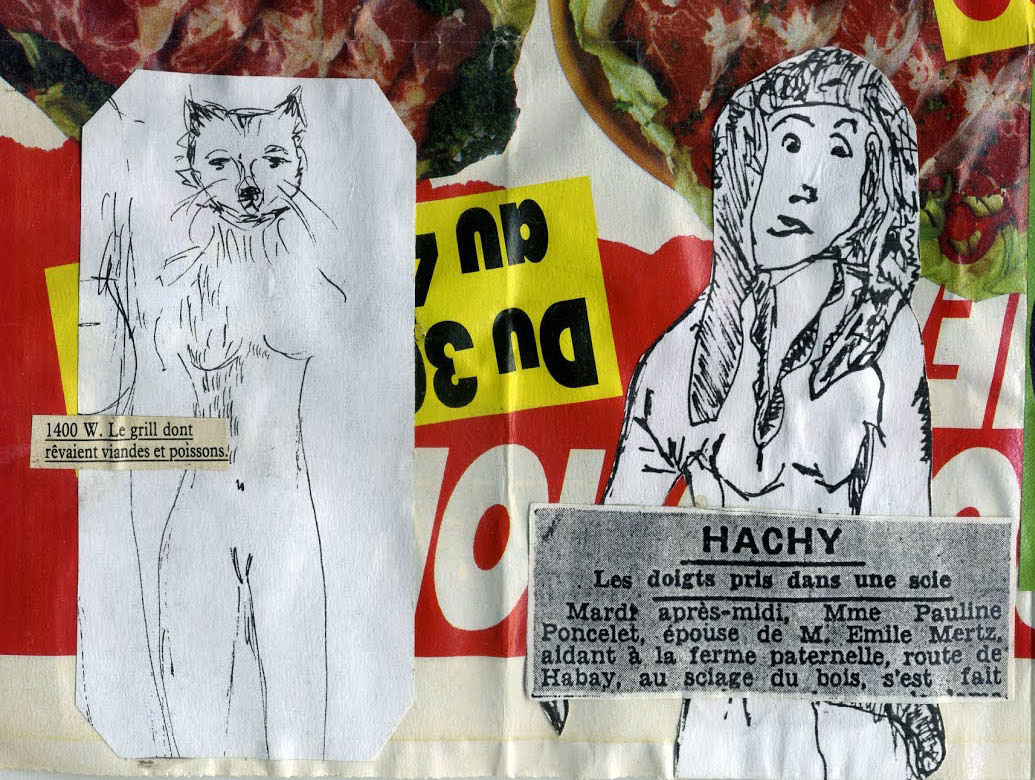 au
Du 30
1400 W. Le grill dont
rêvaient viandes et poissons.
HACHY
Les doigts pris dans une scie
Mardi après-midi, Mme Pauline
Poncelet, épouse de M. Emile Mertz,
aidant à la ferme paternelle, route de
Habay, au sciage du bois, s'est fait